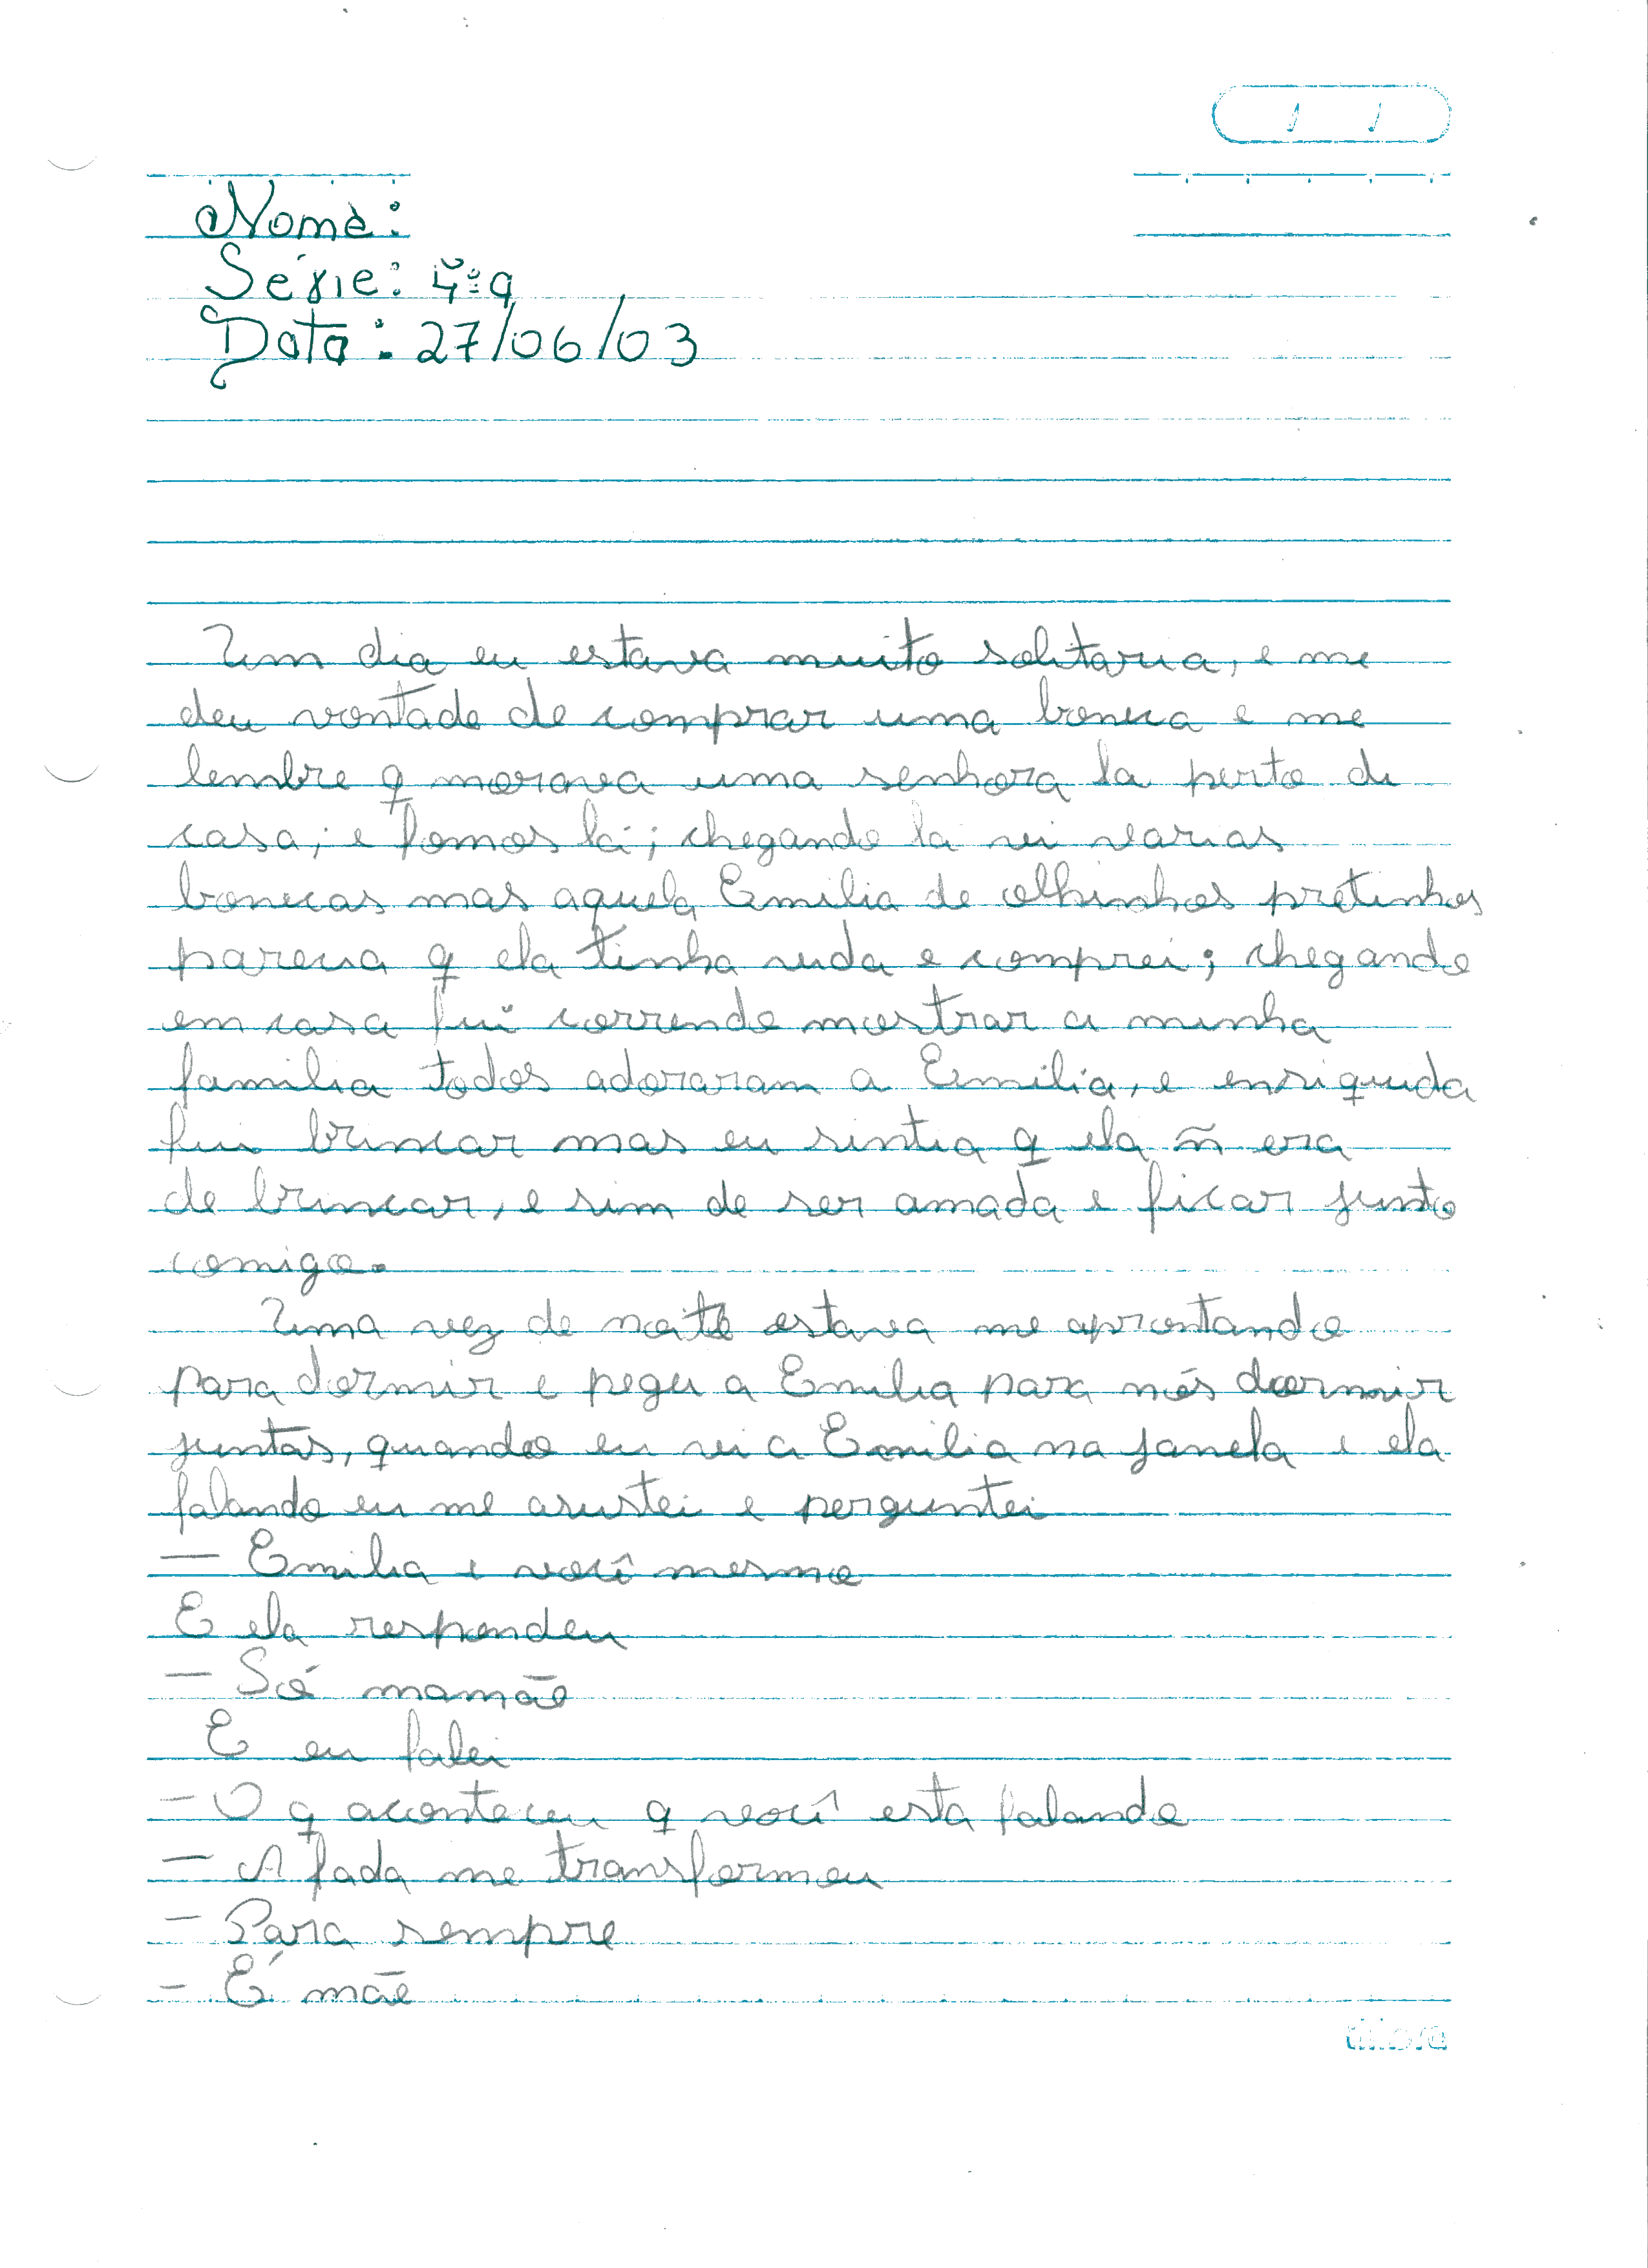 Nome:
Série: 4ª a
Data: 27/06/03
Um dia eu estava muito solitaria, e me
deu vontade de comprar uma boneca e me
lembre q morava uma senhora la perto de
casa; e fomos lá; chegando la vi varias
bonecas mas aquela Emilia de olhinhos pretinhos
parecia q ela tinha vida e comprei; chegando
em casa fui correndo mostrar a minha
familia todos adoraram a Emilia, e ensiguida
fui brincar mas eu sintia q ela ñ era
de brincar, e sim de ser amada e ficar junto
comigo.
Uma vez de noite estava me aprontando
para dormir e pegu a Emilia para nós dormir
juntas, quando eu vi a Emilia na janela e ela
falando eu me asustei e perguntei
— Emilia e você mesmo
E ela respondeu
— Só mamãe
E eu falei
— O q aconteceu q você esta falando
— A fada me transformou
— Para sempre
— É mãe
tilibra